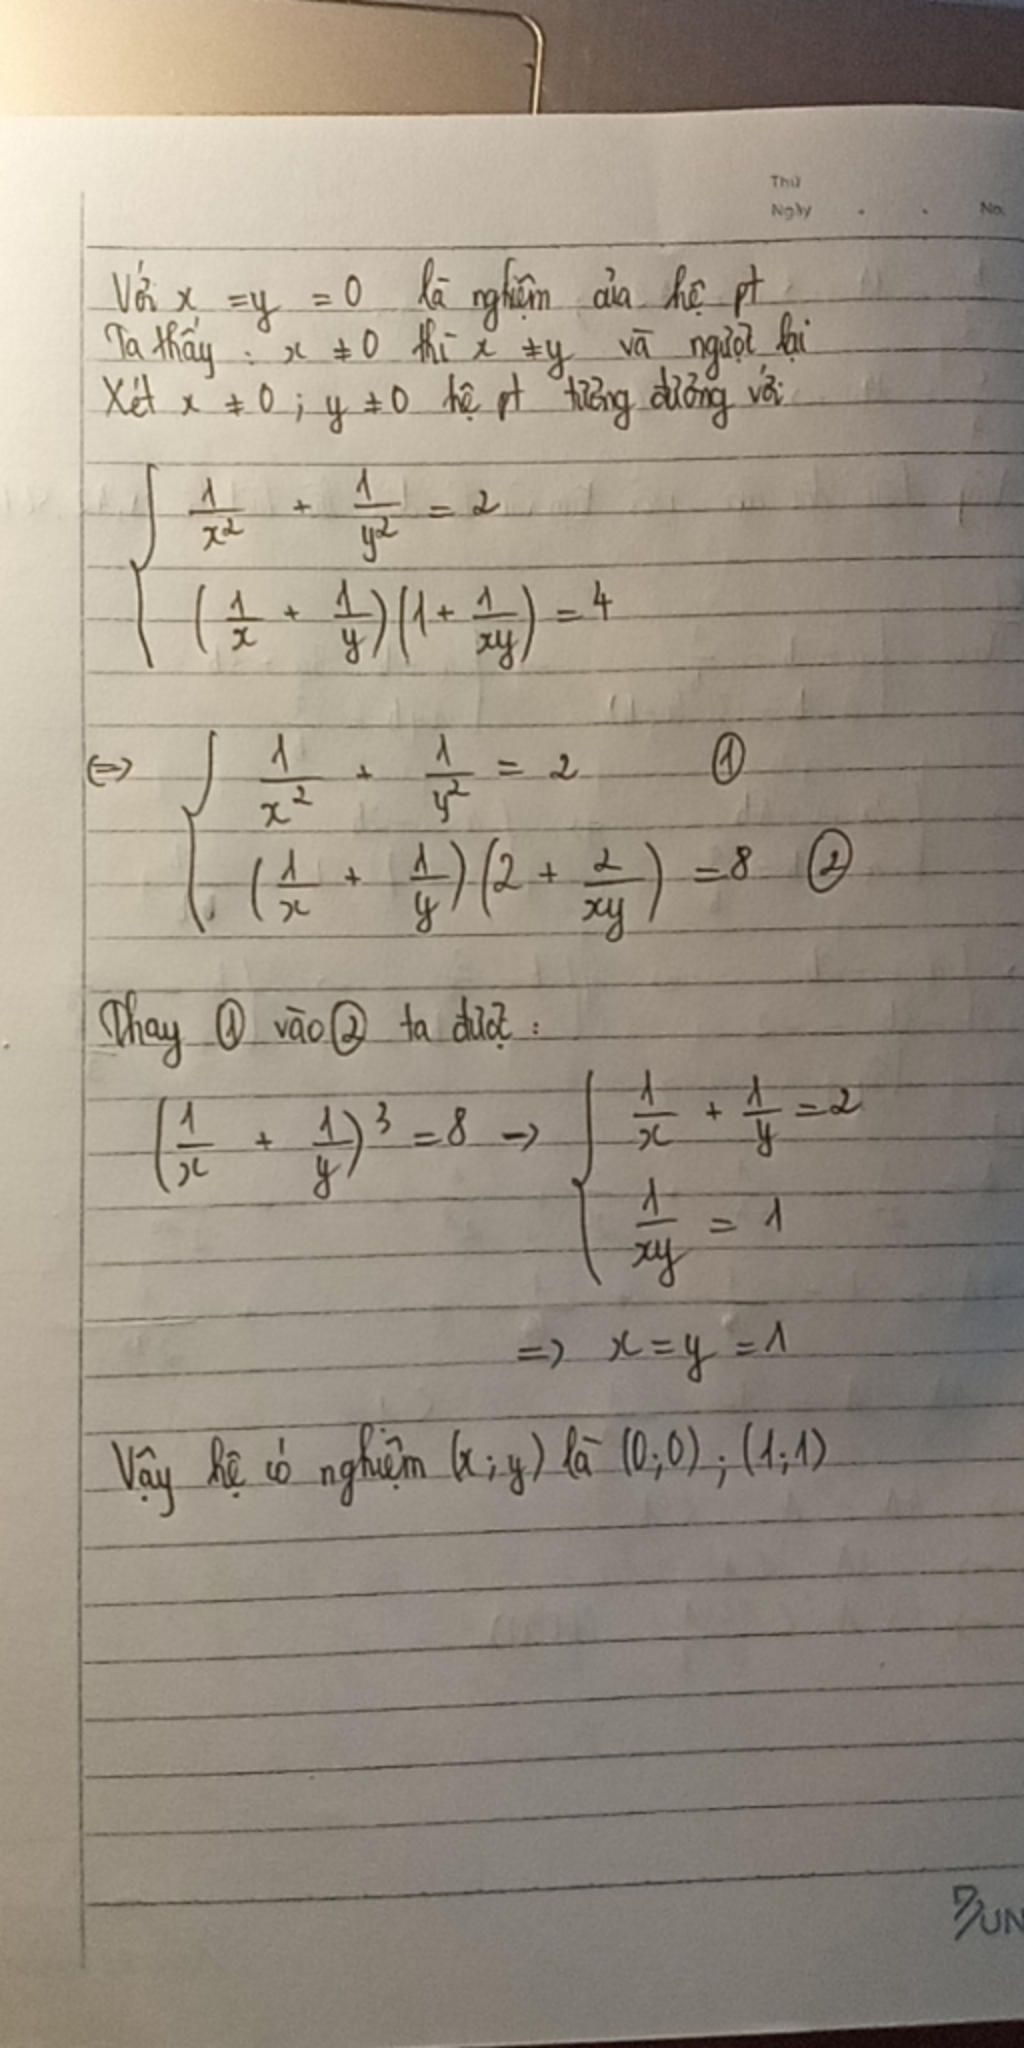 Thứ
Ngày . . No.
Với x = y = 0 là nghiệm của hệ pt
Ta thấy : x ≠ 0 thì x ≠ y và ngược lại
Xét x ≠ 0 ; y ≠ 0 hệ pt tương đương với
{ 1/x² + 1/y² = 2
(1/x + 1/y)(1 + 1/xy) = 4
<=> { 1/x² + 1/y² = 2 ①
(1/x + 1/y)(2 + 2/xy) = 8 ②
Thay ① vào ② ta được :
(1/x + 1/y)³ = 8 -> { 1/x + 1/y = 2
1/xy = 1
=> x = y = 1
Vậy hệ có nghiệm (x ; y) là (0;0) ; (1;1)